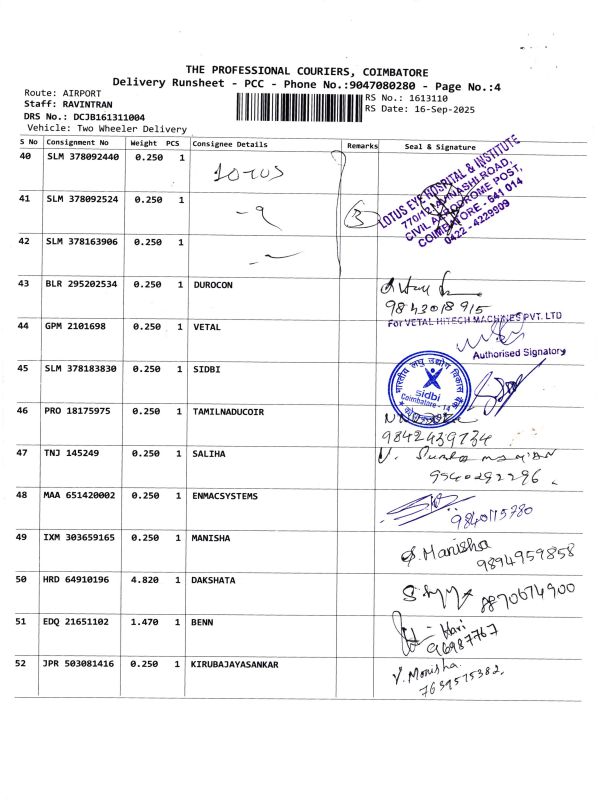 THE PROFESSIONAL COURIERS, COIMBATORE
Delivery Runsheet - PCC - Phone No.:9047080280 - Page No.:4
Route: AIRPORT
Staff: RAVINTRAN
DRS No.: DCJB161311004
Vehicle: Two Wheeler Delivery
RS No.: 1613110
RS Date: 16-Sep-2025
S No Consignment No Weight PCS Consignee Details Remarks Seal & Signature
40 SLM 378092440 0.250 1 LOTUS
LOTUS EYE HOSPITAL & INSTITUTE
770/12, AVINASHI ROAD,
CIVIL AERODROME POST,
COIMBATORE - 641 014
0422 - 4229909
41 SLM 378092524 0.250 1 3
42 SLM 378163906 0.250 1
43 BLR 295202534 0.250 1 DUROCON
9843018915
44 GPM 2101698 0.250 1 VETAL
For VETAL HITECH MACHINES PVT. LTD
Authorised Signatory
45 SLM 378183830 0.250 1 SIDBI
sidbi
Coimbatore - 14
46 PRO 18175975 0.250 1 TAMILNADUCOIR
9842439734
47 TNJ 145249 0.250 1 SALIHA
9540292296.
48 MAA 651420002 0.250 1 ENMACSYSTEMS
9840115780
49 IXM 303659165 0.250 1 MANISHA
S. Manisha
9894959858
50 HRD 64910196 4.820 1 DAKSHATA
8870674900
51 EDQ 21651102 1.470 1 BENN
Hari
96987767
52 JPR 503081416 0.250 1 KIRUBAJAYASANKAR
V. Monisha.
7639575382.